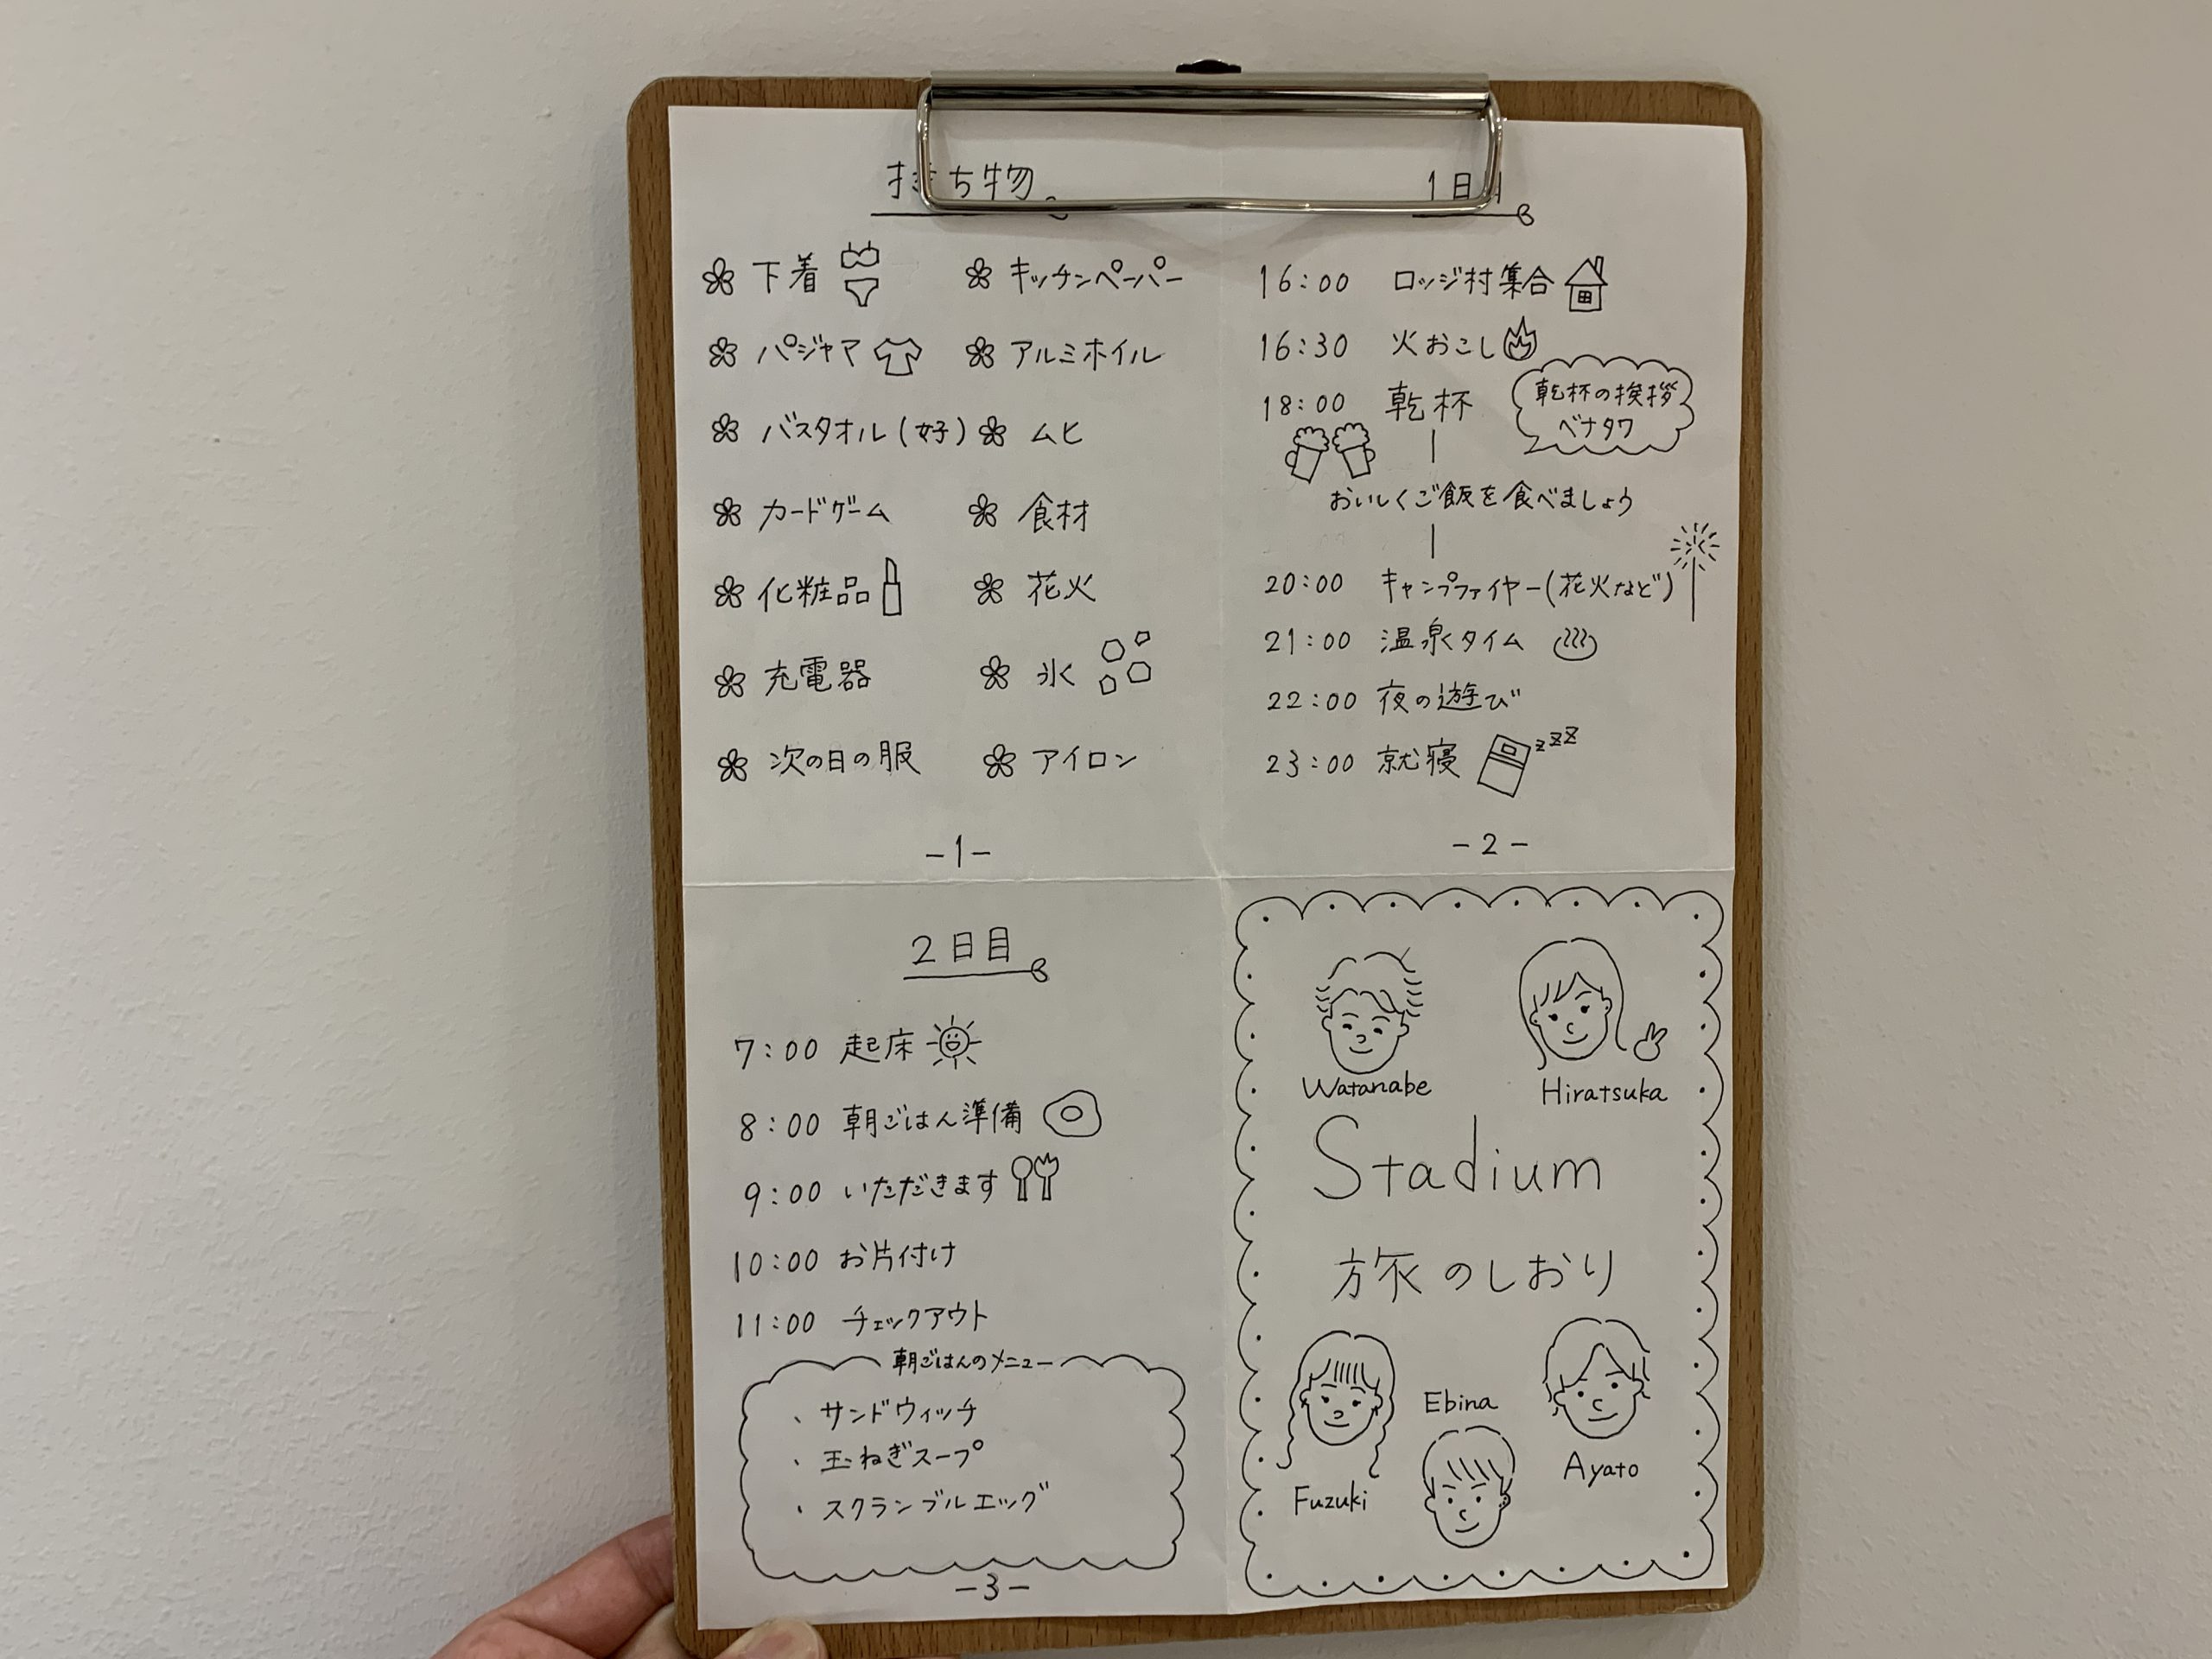 持ち物
下着
キッチンペーパー
パジャマ
アルミホイル
バスタオル(好)
ムヒ
カードゲーム
食材
化粧品
花火
充電器
氷
次の日の服
アイロン
-1-
1日目
16:00 ロッジ村集合
16:30 火おこし
18:00 乾杯
乾杯の挨拶
ベナタワ
おいしくご飯を食べましょう
20:00 キャンプファイヤー(花火など)
21:00 温泉タイム
22:00 夜の遊び
23:00 就寝
zzz
-2-
2日目
7:00 起床
8:00 朝ごはん準備
9:00 いただきます
10:00 お片付け
11:00 チェックアウト
朝ごはんのメニュー
・サンドウィッチ
・玉ねぎスープ
・スクランブルエッグ
-3-
Watanabe
Hiratsuka
Stadium
旅のしおり
Ebina
Ayato
Fuzuki